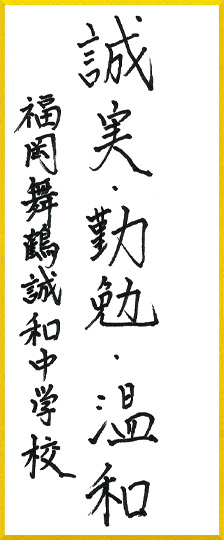 誠実・勤勉・温和
福岡舞鶴誠和中学校